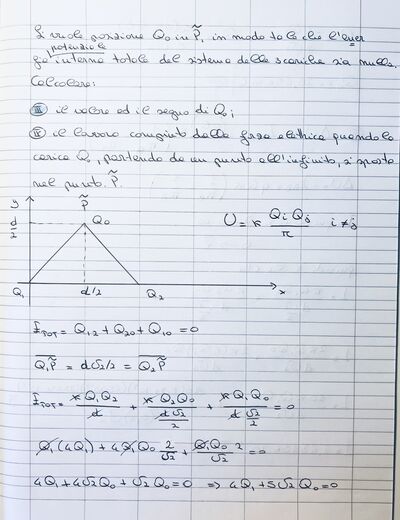 Si vuole posizione Q₀ in P̃, in modo tale che l'ener
potenziale
gia interna totale del sistema delle scariche sia nulla.
Calcolare:
III il valore ed il segno di Q₀;
IV il lavoro compiuto dalla forza elettrica quando la
carica Q₀, partendo da un punto all'infinito, si sposta
nel punto P̃.
y
P̃
d/2
Q₀
U = k QiQj/r i≠j
Q₁ d/2 Q₂ x
E_TOT = Q₁₂ + Q₂₀ + Q₁₀ = 0
Q₁P̃ = d√2/2 = Q₂P̃
E_TOT = kQ₁Q₂/d + kQ₂Q₀/(d√2/2) + kQ₁Q₀/(d√2/2) = 0
Q₁(4Q₁) + 4Q₁Q₀ 2/√2 + Q₁Q₀2/√2 = 0
4Q₁ + 4√2Q₀ + √2Q₀ = 0 ⇒ 4Q₁ + 5√2Q₀ = 0